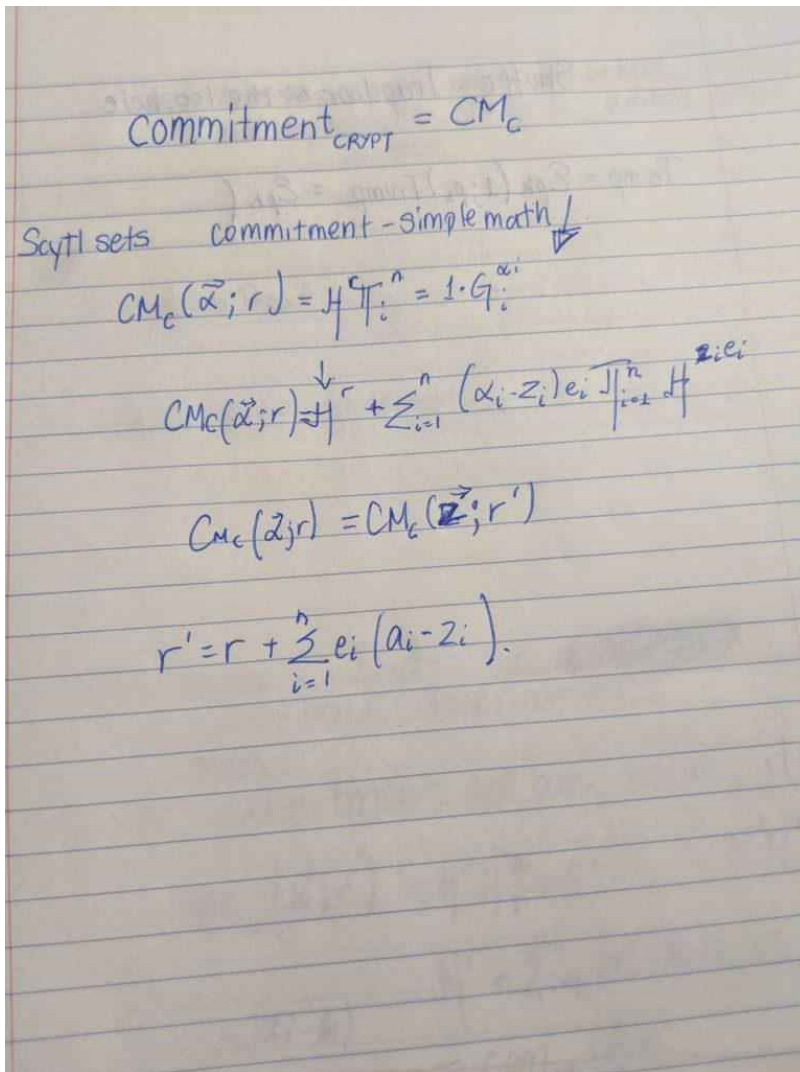 Commitment_CRYPT = CM_c
Scytl sets commitment - simple math!
CM_c(α⃗; r) = H^r ∏_i^n = 1·G_i^{αi}
CM_c(α⃗; r) = H^r + ∑_{i=1}^n (αi - zi) ei ∏_{i=1}^n H^{zi ei}
CM_c(α⃗; r) = CM_c(z⃗; r')
r' = r + ∑_{i=1}^n ei (ai - zi).